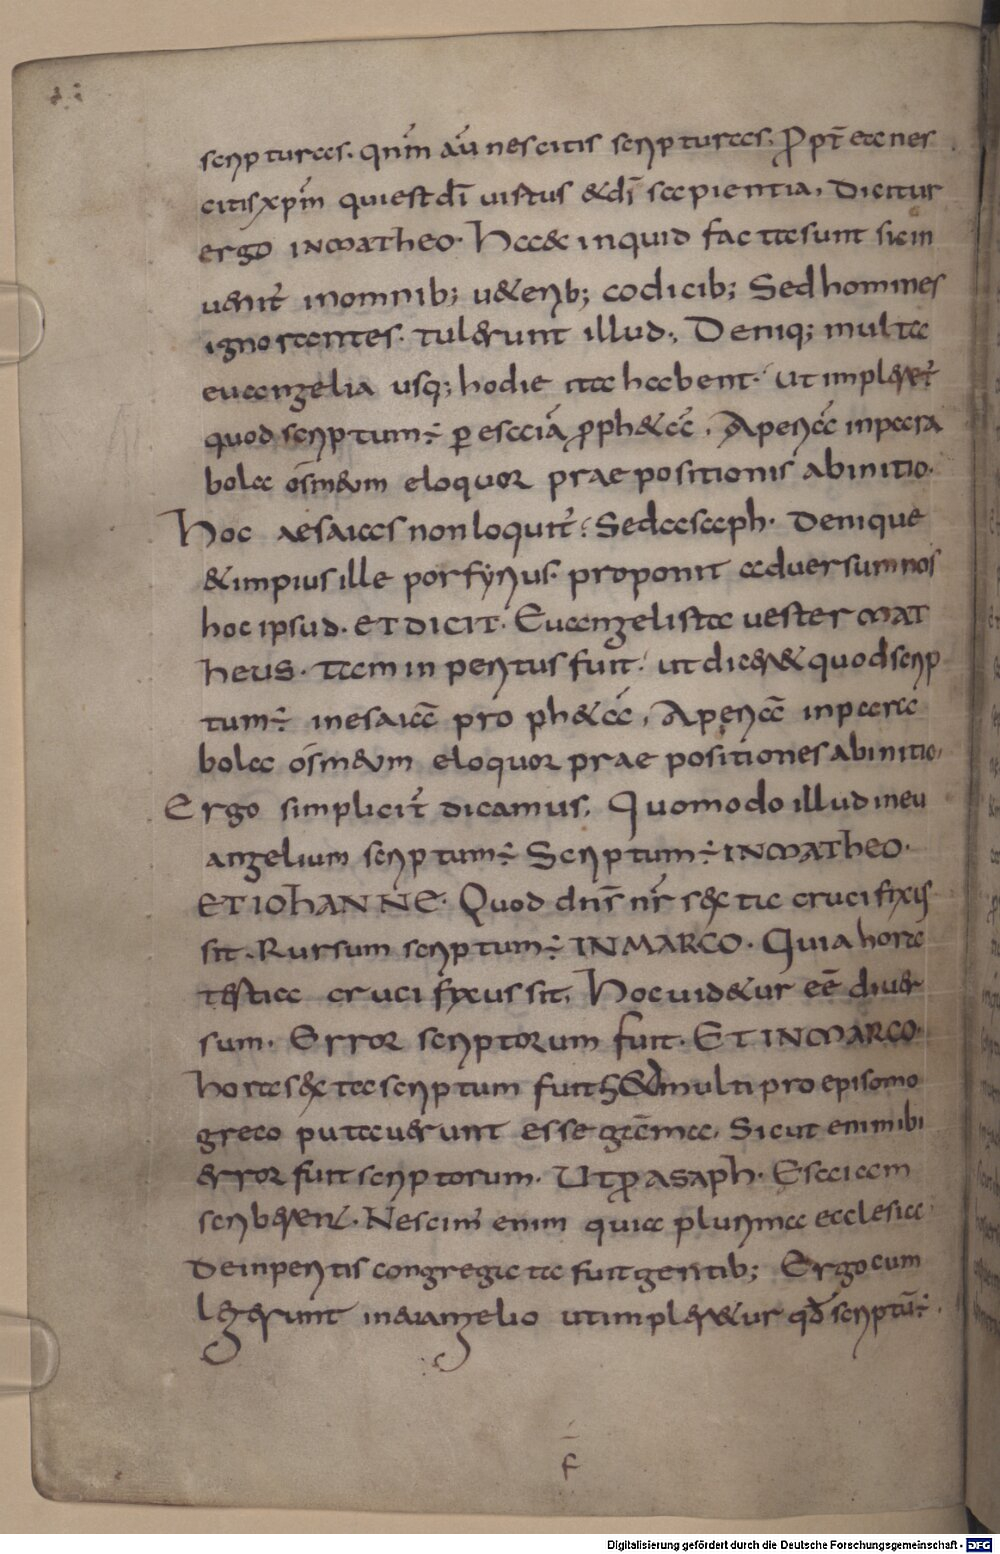 scripturas. qnm̄ aū nescitis scripturas. Propt̄ ea nes
citis xpm̄ qui est dī uirtus & dī sapientia. Dicitur
ergo IN MATHEO. Haec inquid facta sunt sic in
uenit̄ in omnib; u&erib; codicib; Sed homines
ignorantes. tulerunt illud. Deniq; multa
euangelia usq; hodie ita habent. ut impler&̄
quod scriptum ÷ per esaiā proph&ā. Aperiā in para
bola ōs meum eloquor praepositionis ab initio.
Hoc aesaias non loquit̄. Sed asaph. Denique
& impius ille porfyrius. proponit aduersum nos
hoc ipsud. ET DICIT. Euangelista uester MAT
HEUS. tam inperitus fuit. ut dicer& quod scrip
tum ÷ in esaia propheta. Aperiā in para
bola ōs meum eloquor praepositiones ab initio.
Ergo simplicit̄ dicamus. Quomodo illud in eu
angelium scriptum ÷ Scriptum ÷ IN MATHEO.
ET IOHANNE. Quod dn̄s nr̄ sexta crucifixus
sit. Rursum scriptum ÷ IN MARCO. Quia hora
tertia crucifixus sit. Hoc uid&ur eē diuer
sum. Error scriptorum fuit. ET IN MARCO.
hora sexta scriptum fuit Sed multi pro episomo
greco putauerunt esse gamma. Sicut enim ibi
error fuit scriptorum. Ut pro ASAPH. Esaiam
scriberent. Nescim̄ enim quia plurima ecclesia
De inperitis congregata fuit gentib; Ergo cum
legerunt in euangelio ut impler&ur qđ scriptū ÷.
f
Digitalisierung gefördert durch die Deutsche Forschungsgemeinschaft - DFG